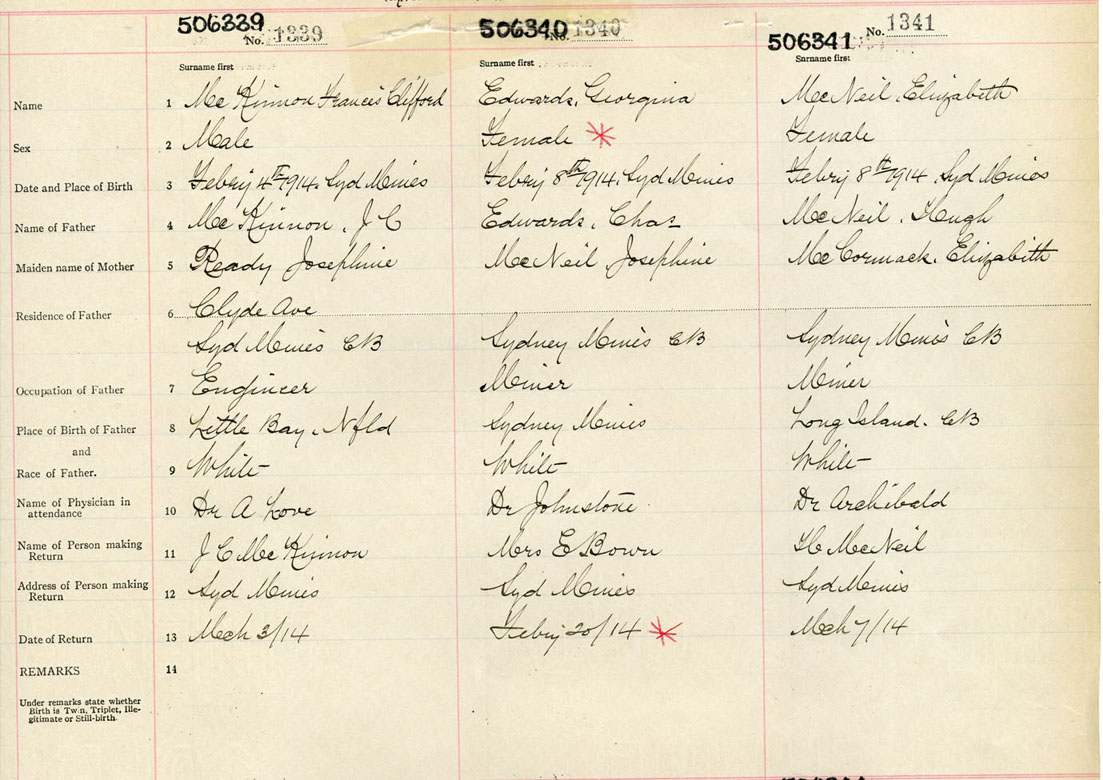 506339 No. 1339 506340 No. 1340 506341 No. 1341
Surname first Surname first Surname first
Name 1 McKinnon Francis Clifford Edwards, Georgina McNeil, Elizabeth
Sex 2 Male Female Female
Date and Place of Birth 3 Febry 4th 1914, Syd Mines Febry 8th 1914, Syd Mines Febry 8th 1914, Syd Mines
Name of Father 4 McKinnon, J C Edwards, Chas McNeil, Hugh
Maiden name of Mother 5 Ready Josephine McNeil Josephine McCormack, Elizabeth
Residence of Father 6 Clyde Ave
Syd Mines CB Sydney Mines CB Sydney Mines CB
Occupation of Father 7 Engineer Miner Miner
Place of Birth of Father 8 Little Bay, Nfld Sydney Mines Long Island, CB
and
Race of Father. 9 White White White
Name of Physician in attendance 10 Dr A Love Dr Johnstone Dr Archibald
Name of Person making Return 11 J C McKinnon Mrs E Bown H McNeil
Address of Person making Return 12 Syd Mines Syd Mines Syd Mines
Date of Return 13 Mch 3/14 Febry 20/14 Mch 7/14
REMARKS 14
Under remarks state whether
Birth is Twin, Triplet, Ille-
gitimate or Still-birth.